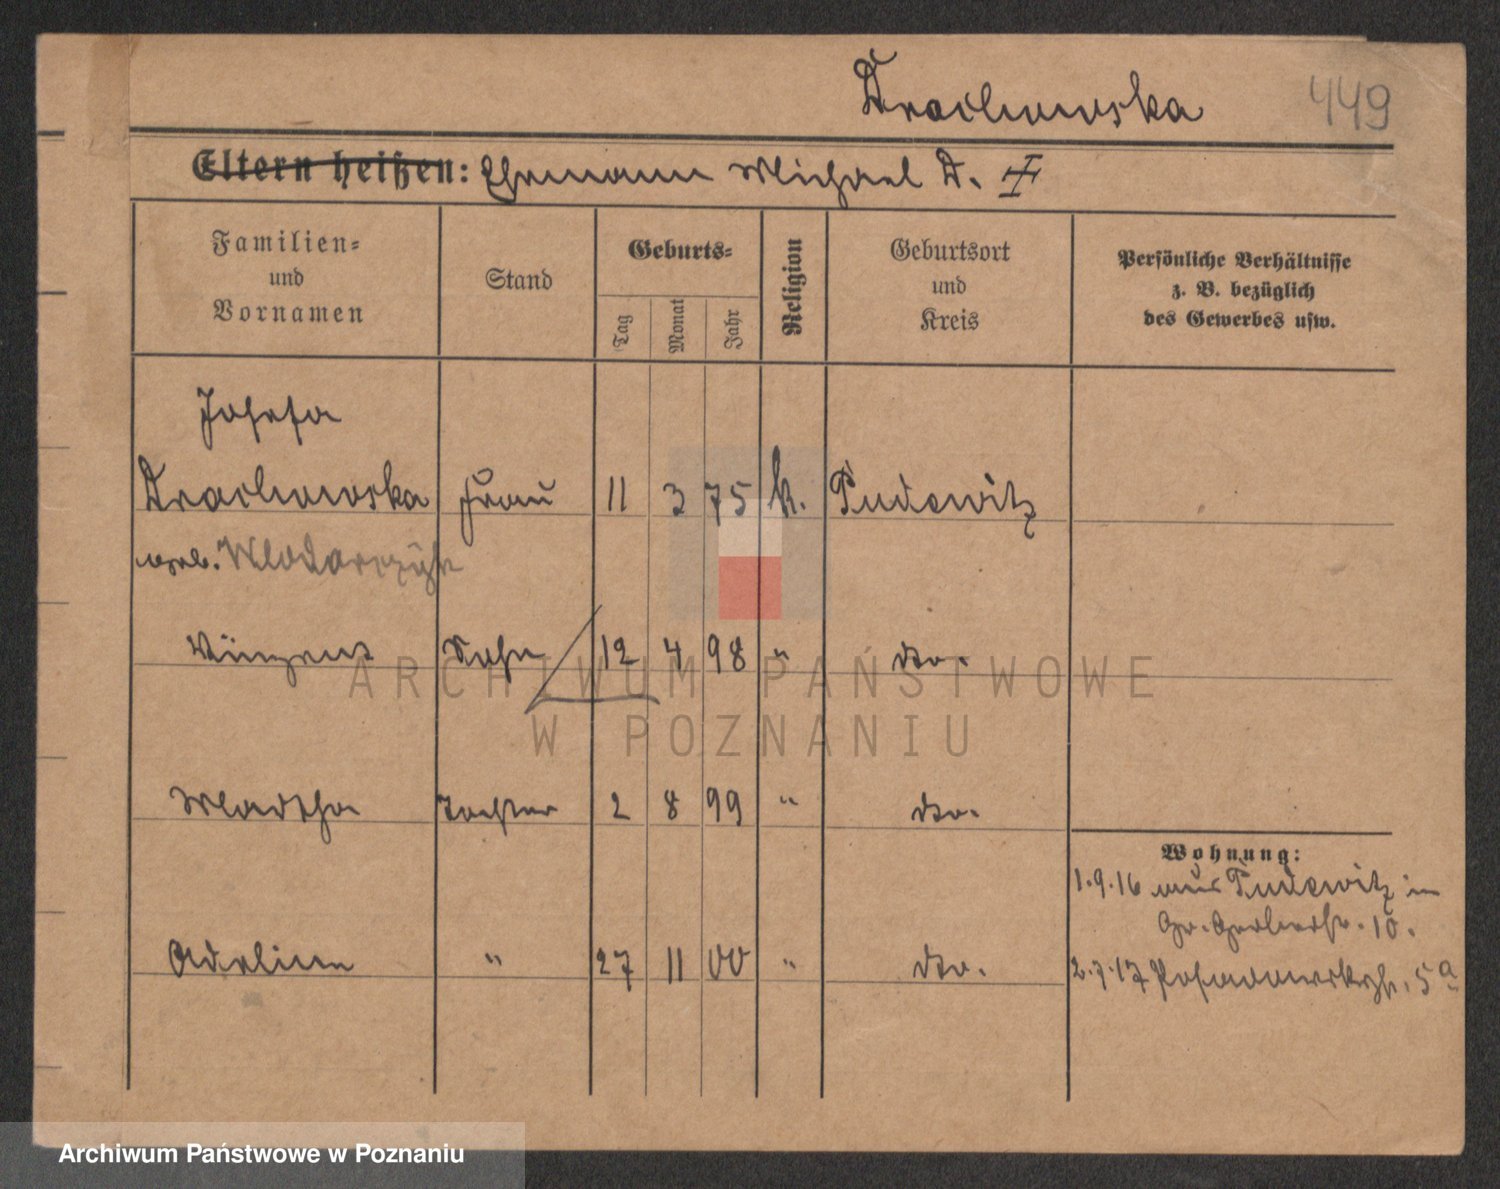 Drachowska 449
Eltern heißen: Ehemann Michael D. ‡
Familien-
und
Vornamen
Stand
Geburts-
Tag
Monat
Jahr
Religion
Geburtsort
und
Kreis
Persönliche Verhältnisse
z. B. bezüglich
des Gewerbes usw.
Josefa
Drachowska Frau 11 3 75 k. Pudewitz
geb.
Vinzent Sohn 12 4 98 " do.
ARCHIWUM PAŃSTWOWE
W POZNANIU
Martha Tochter 2 8 99 " do.
Wohnung:
1.9.16 aus Pudewitz in
Gr. Gerberstr. 10.
Adeline " 27 11 00 " do.
2.7.17 5a
Archiwum Państwowe w Poznaniu